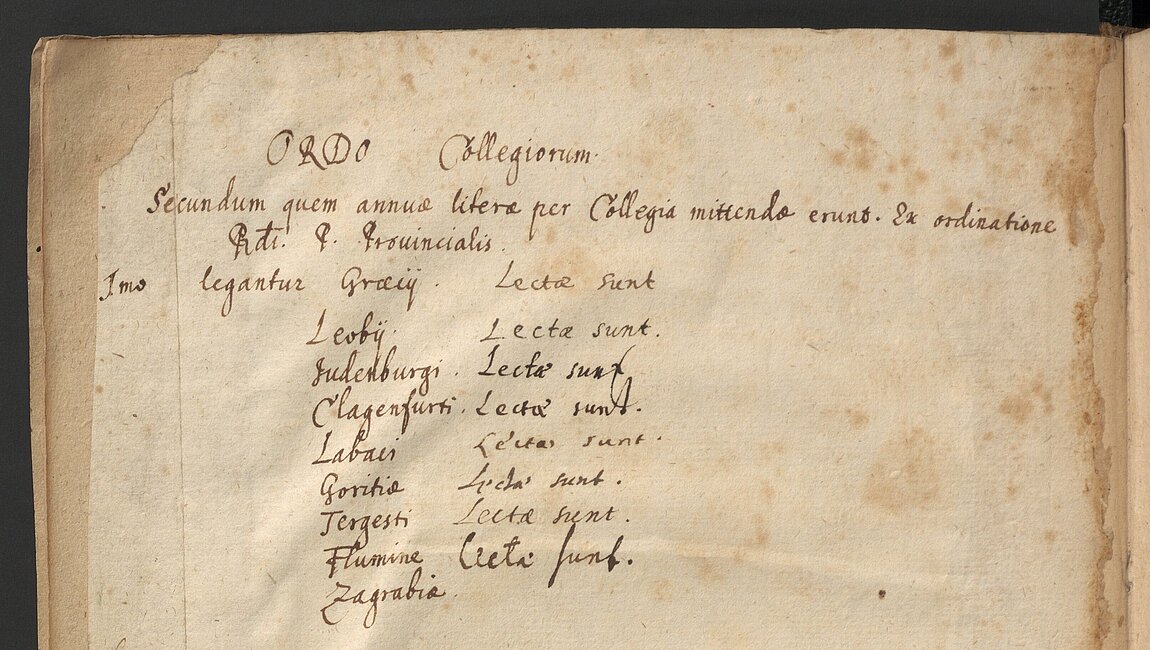 ORDO Collegiorum.
Secundum quem annuæ literæ per Collegia mittendæ erunt. Ex ordinatione
Rdi. P. Prouincialis.
Imo legantur Græcij. Lectæ sunt
Leobij. Lectæ sunt.
Judenburgi. Lectæ sunt
Clagenfurti. Lectæ sunt.
Labaci Lectæ sunt.
Goritiæ Lectæ sunt.
Tergesti Lectæ sunt.
Flumine Lectæ sunt.
Zagrabiæ.